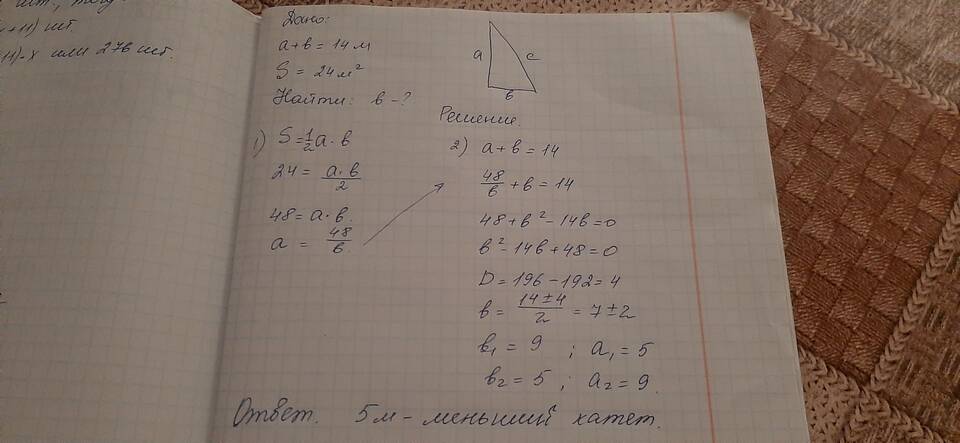 шт.,
+11) шт.
11)-х или 276 шт.
Дано:
a+b=14м
S=24м²
Найти: b-?
a c
b
Решение.
1) S=½a·b
24= a·b/2
48=a·b.
a = 48/b
2) a+b=14
48/b+b=14
48+b²-14b=0
b²-14b+48=0
D=196-192=4
b= 14±4/2 =7±2
b₁=9 ; a₁=5
b₂=5 ; a₂=9.
Ответ. 5м-меньший катет.